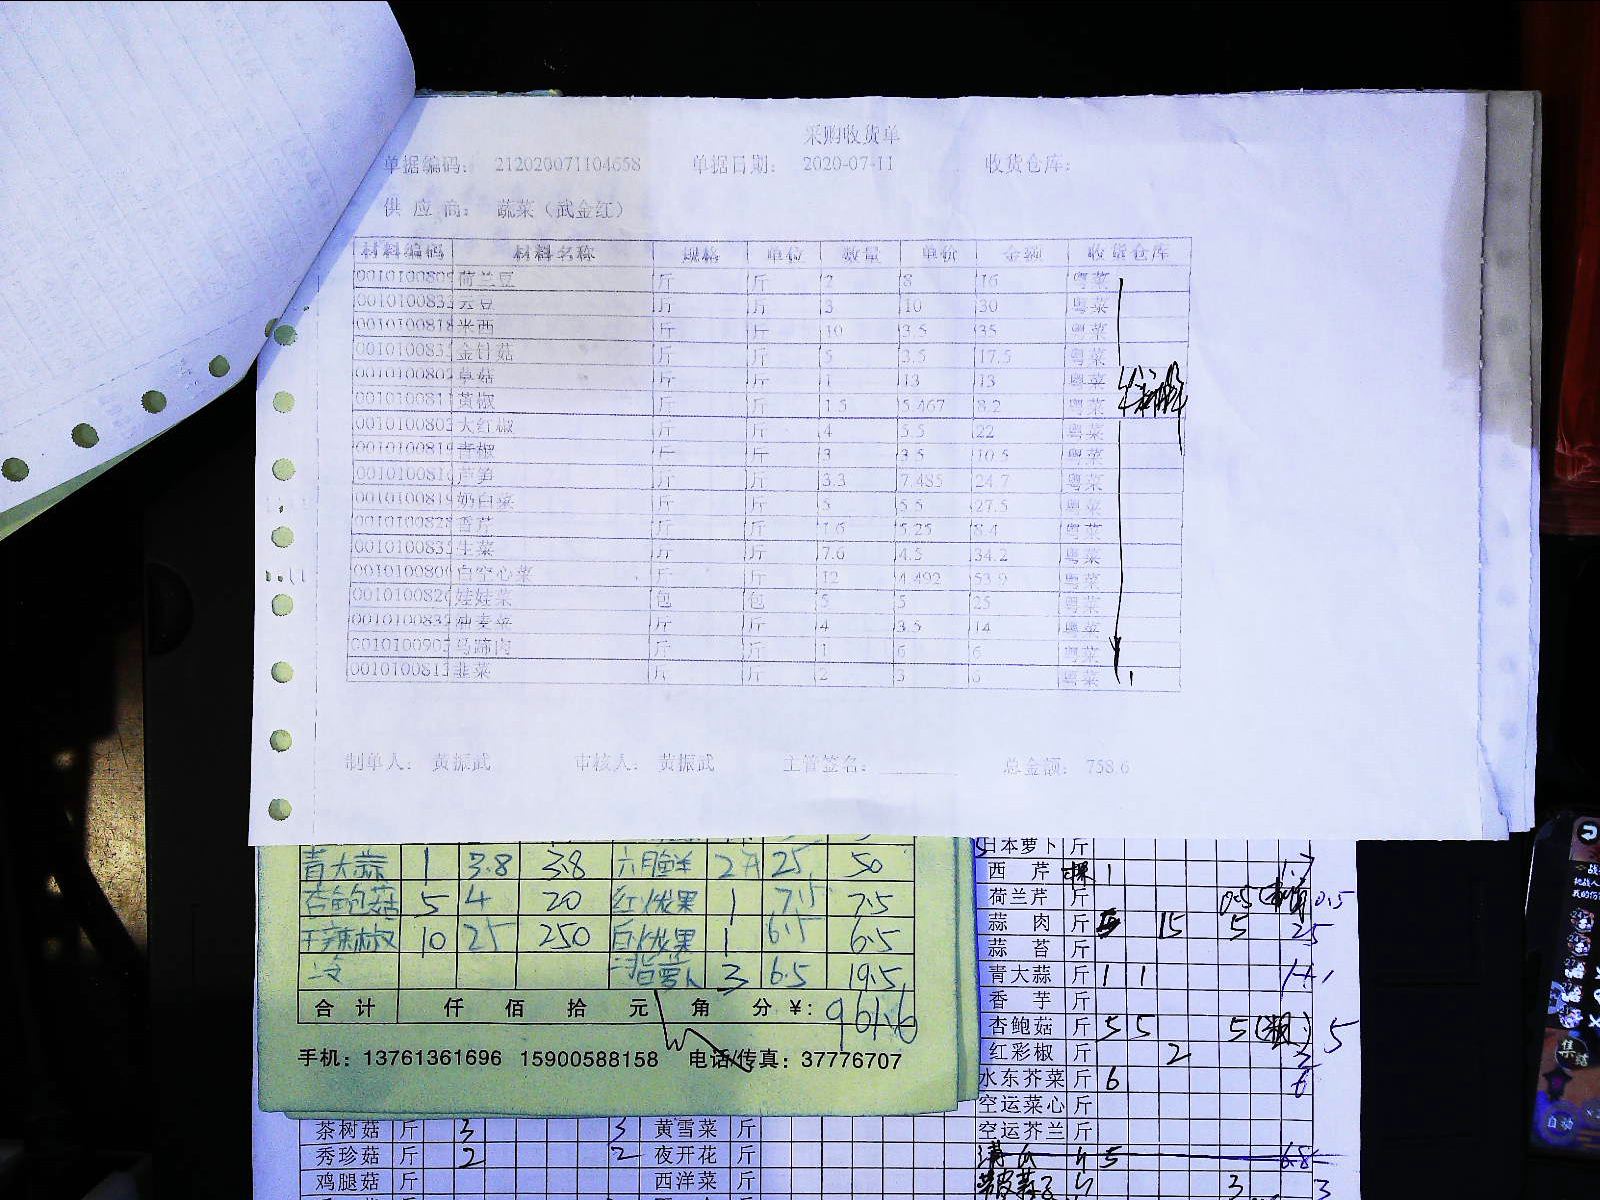 采购收货单
单据编码: 212020071104658 单据日期: 2020-07-11 收货仓库:
供 应 商: 蔬菜（武金红）
材料编码 材料名称 规格 单位 数量 单价 金额 收货仓库
0010100809 荷兰豆 斤 斤 2 8 16 粤菜
001010083 云豆 斤 斤 3 10 30 粤菜
0010100818 米西 斤 斤 10 3.5 35 粤菜
001010083 金针菇 斤 斤 5 3.5 17.5 粤菜
001010080 草菇 斤 斤 1 13 13 粤菜
001010081 黄椒 斤 斤 1.5 5.467 8.2 粤菜
001010080 大红椒 斤 斤 4 5.5 22 粤菜
001010081 青椒 斤 斤 3 3.5 10.5 粤菜
001010081 芦笋 斤 斤 3.3 7.485 24.7 粤菜
001010081 奶白菜 斤 斤 5 5.5 27.5 粤菜
001010082 香芹 斤 斤 1.6 5.25 8.4 粤菜
001010083 生菜 斤 斤 7.6 4.5 34.2 粤菜
001010080 白空心菜 斤 斤 12 4.492 53.9 粤菜
001010082 娃娃菜 包 包 5 5 25 粤菜
001010083 油麦菜 斤 斤 4 3.5 14 粤菜
001010090 马蹄肉 斤 斤 1 6 6 粤菜
001010081 韭菜 斤 斤 2 3 6 粤菜
制单人: 黄振武 审核人: 黄振武 主管签名: 总金额: 758.6
青大蒜 1 3.8 3.8 25 50
杏鲍菇 5 4 20 红火龙果 1 7.5 7.5
干辣椒 10 25 250 白火龙果 1 6.5 6.5
3 6.5 19.5
合 计 仟 佰 拾 元 角 分 ¥: 961.6
手机: 13761361696 15900588158 电话/传真: 37776707
日本萝卜 斤
西 芹 棵 1
荷兰芹 斤 0.5 0.5
蒜 肉 斤 5 15 5 25
蒜 苔 斤
青大蒜 斤 1 1
香 芋 斤
杏鲍菇 斤 5 5 5 5
红彩椒 斤 2 2
水东芥菜 斤 6 6
空运菜心 斤
空运芥兰 斤
茶树菇 斤 3 3 黄雪菜 斤
秀珍菇 斤 2 2 夜开花 斤 5
鸡腿菇 斤 西洋菜 斤 3 3
集结
自动